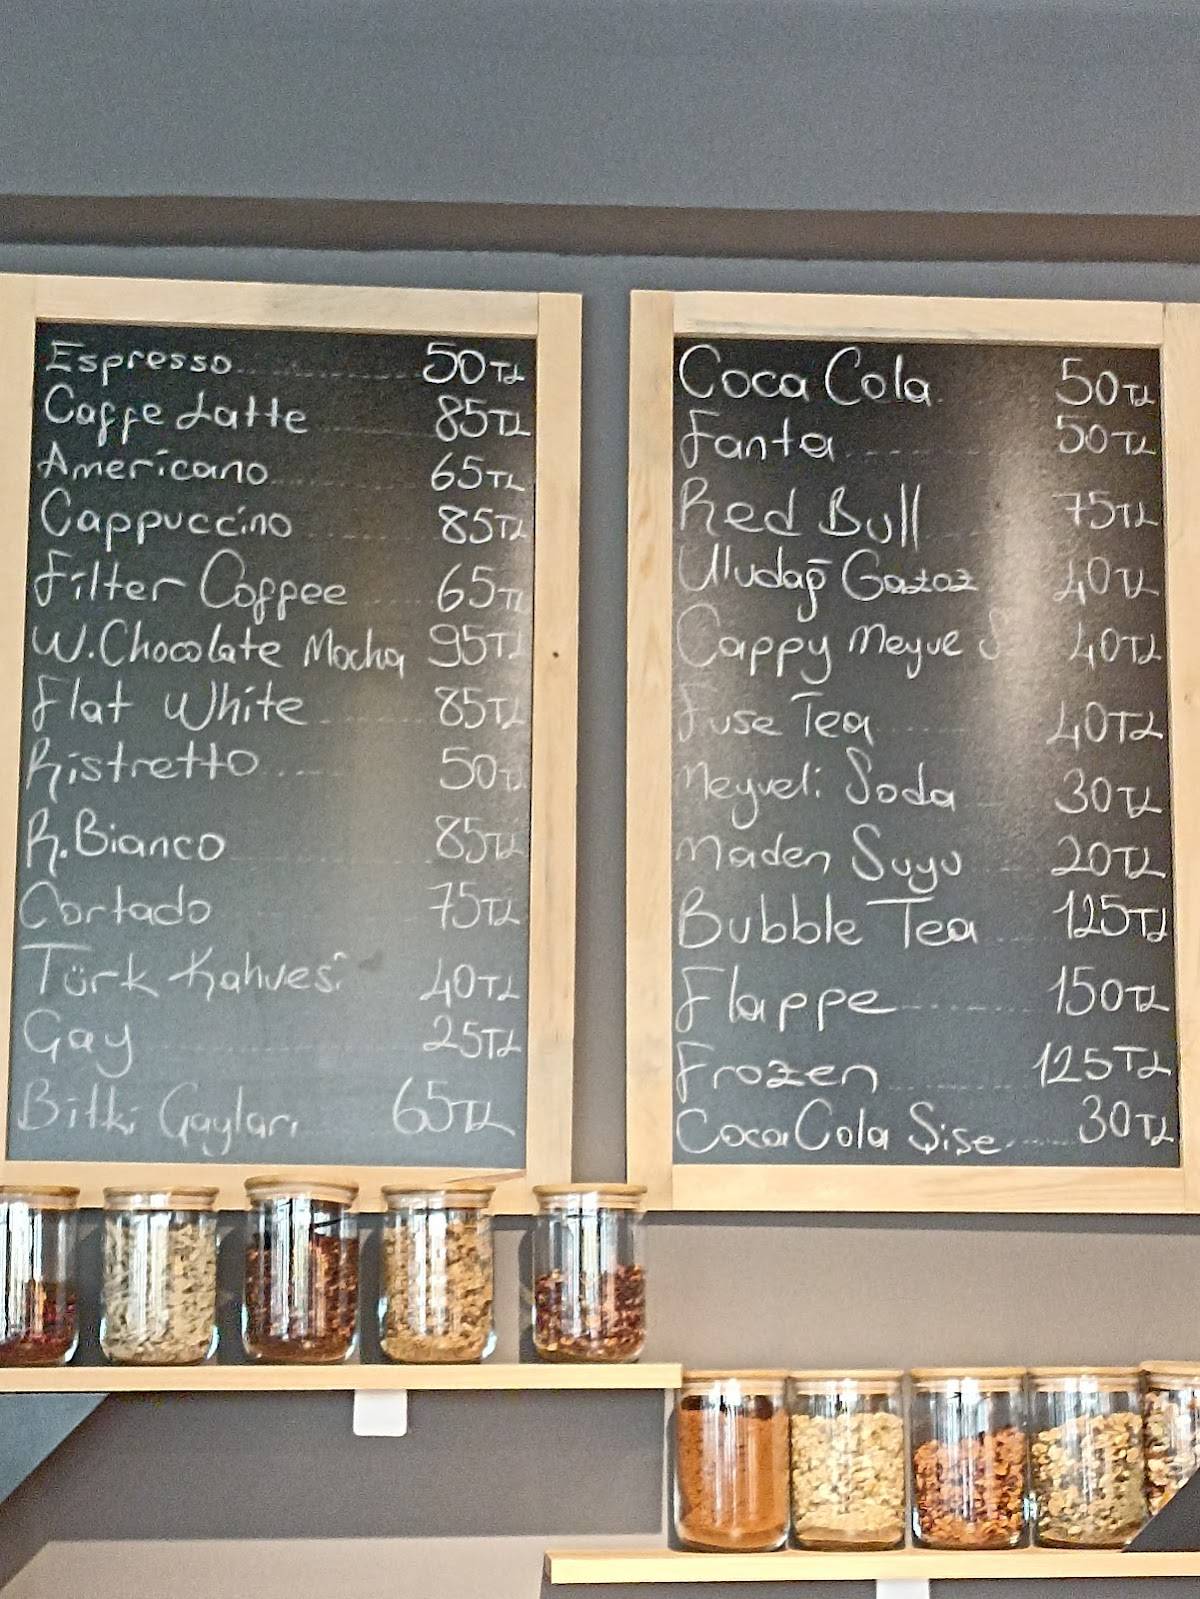 Espresso 50TL
Caffe Latte 85TL
Americano 65TL
Cappuccino 85TL
Filter Coffee 65TL
W.Chocolate Mocha 95TL
Flat White 85TL
Ristretto 50TL
R.Bianco 85TL
Cortado 75TL
Türk Kahvesi 40TL
Çay 25TL
Bitki Çayları 65TL
Coca Cola 50TL
Fanta 50TL
Red Bull 75TL
Uludağ Gazoz 40TL
Cappy Meyve 40TL
Fuse Tea 40TL
Meyveli Soda 30TL
Maden Suyu 20TL
Bubble Tea 125TL
Flappe 150TL
Frozen 125TL
Coca Cola Şişe 30TL